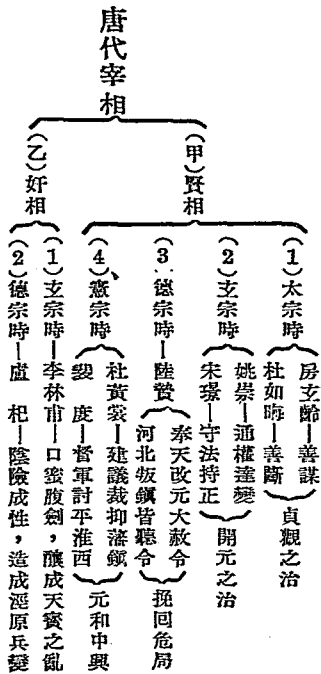 唐代宰相
(甲)賢相
(1)太宗時
房玄齡—善謀
杜如晦—善斷
貞觀之治
(2)玄宗時
姚崇—通權達變
宋璟—守法持正
開元之治
(3)德宗時—陸贄
奉天改元大赦令
河北叛鎮皆聽令
挽回危局
(4)憲宗時
杜黃裳—建議裁抑藩鎮
裴　度—督軍討平淮西
元和中興
(乙)奸相
(1)玄宗時—李林甫—口蜜腹劍，釀成天寶之亂
(2)德宗時—盧　杞—陰險成性，造成涇原兵變